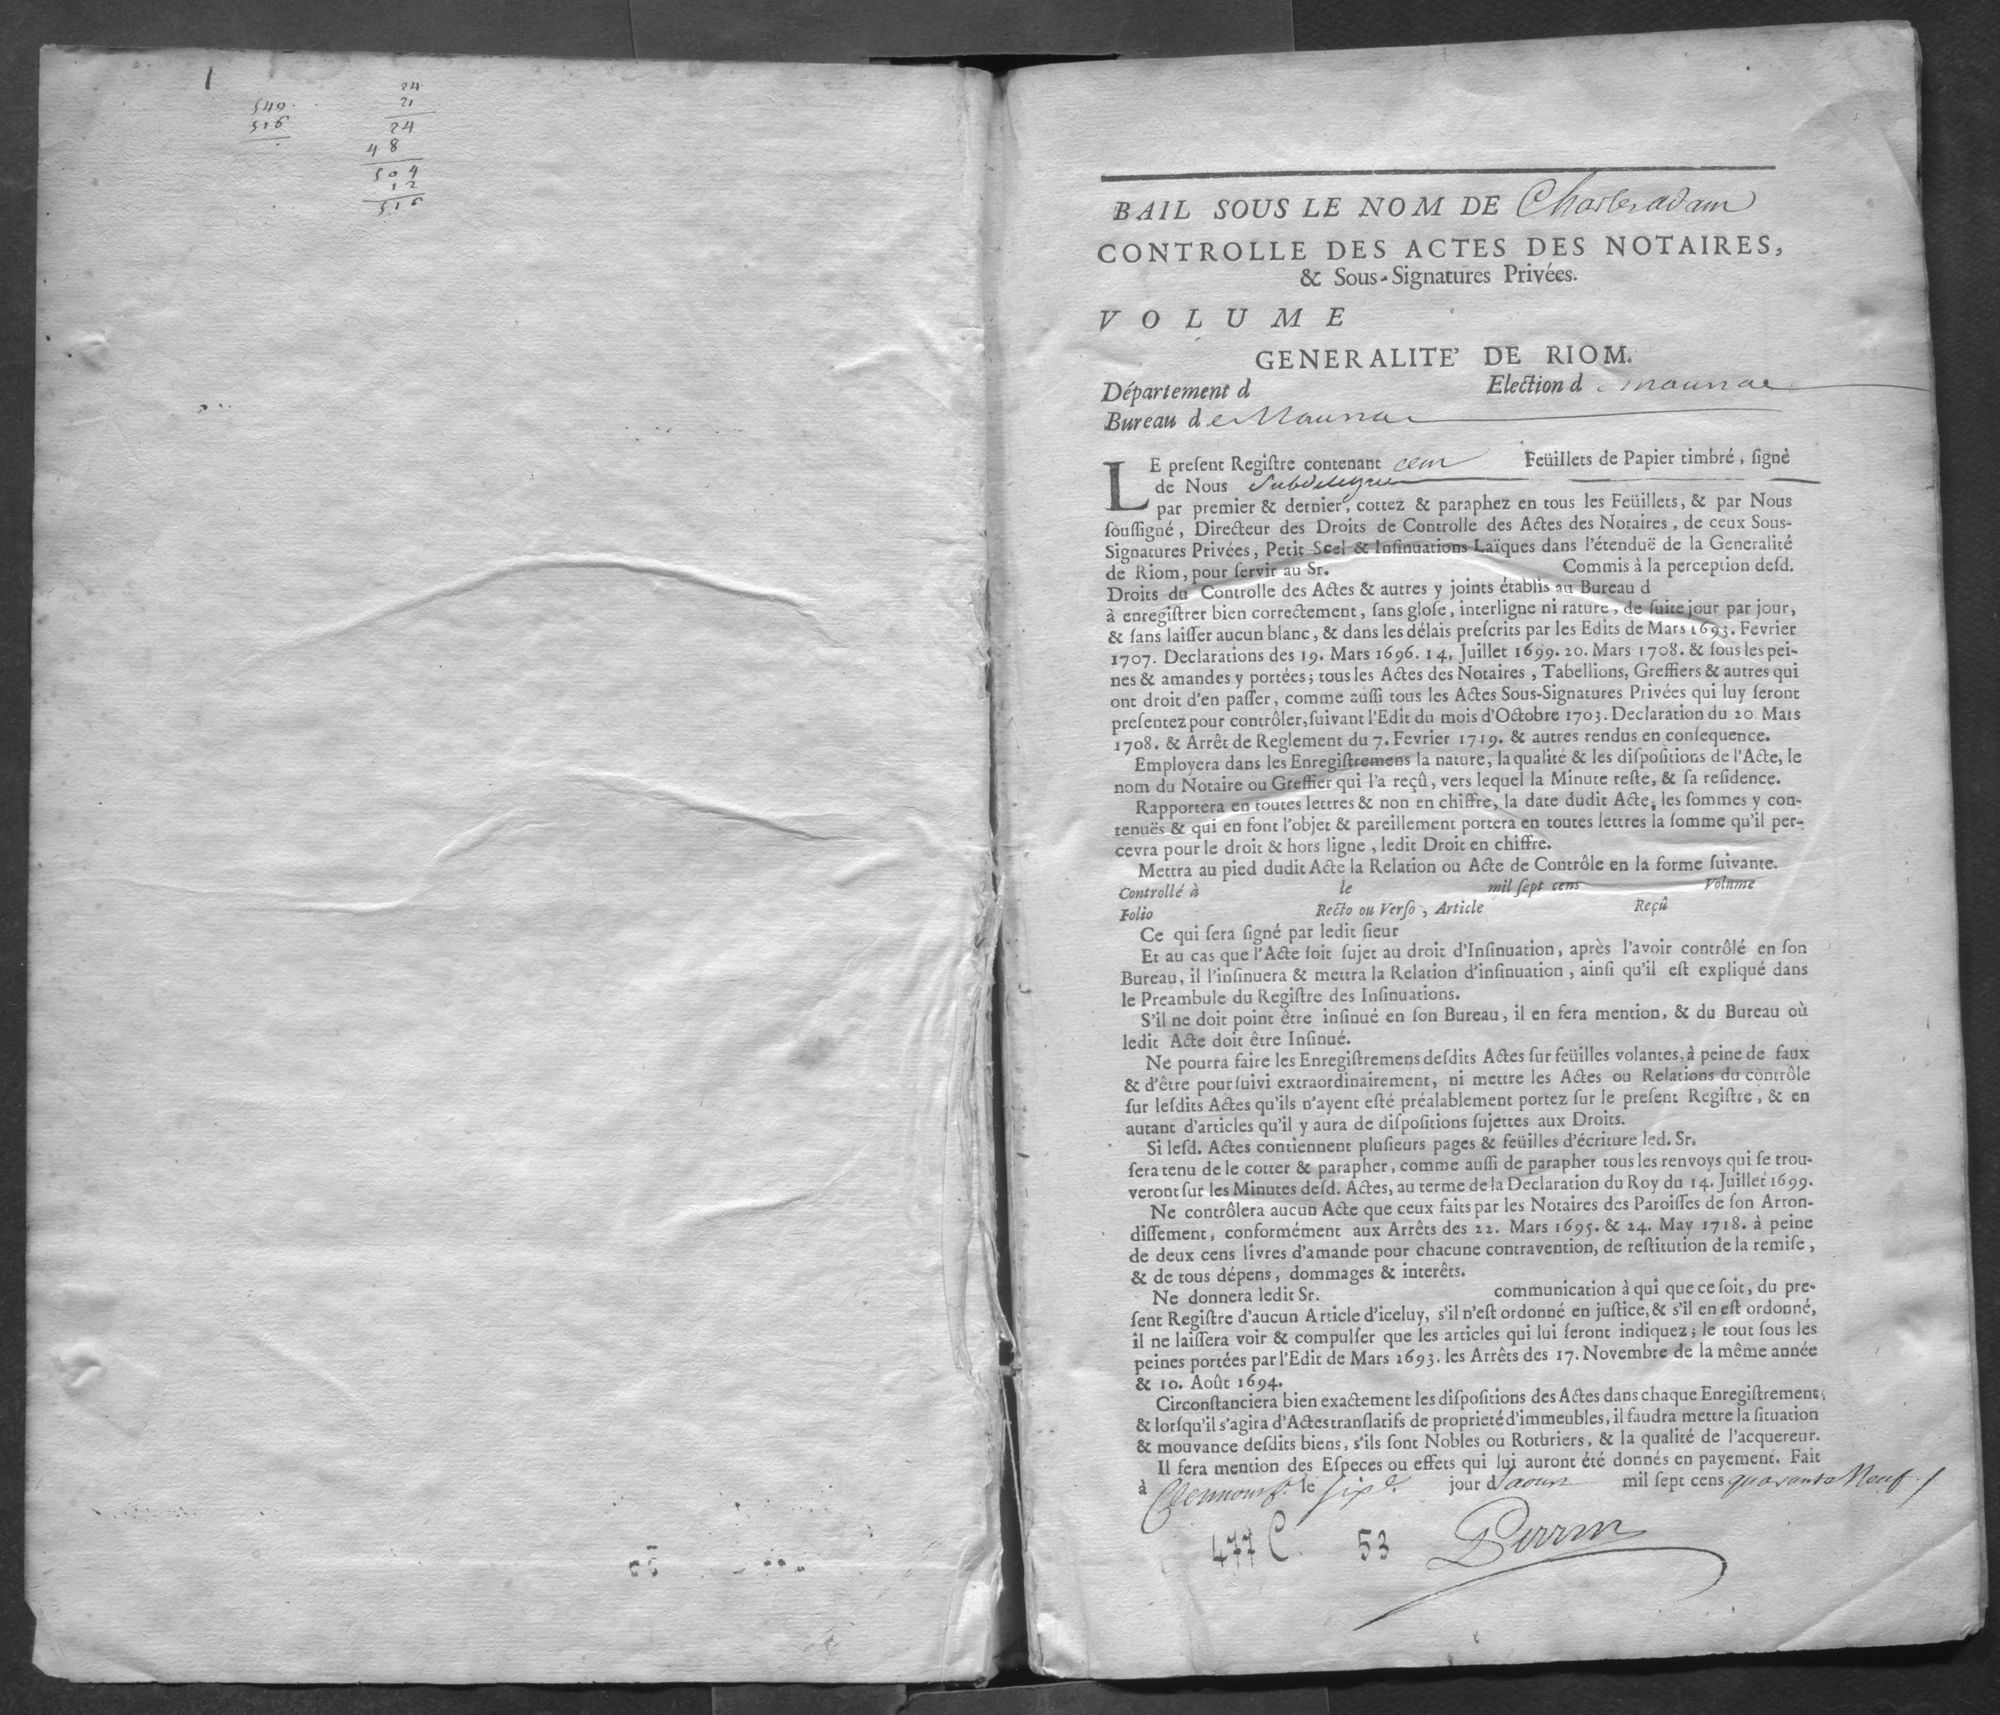 1
540
516
24
21
24
48
504
12
516
BAIL SOUS LE NOM DE Charles adam
CONTROLLE DES ACTES DES NOTAIRES,
& Sous-Signatures Privées.
VOLUME
GENERALITE' DE RIOM.
Département d Election d mauriac
Bureau de Mauriac
LE preſent Regiſtre contenant cent Feüillets de Papier timbré, ſigné
de Nous Subdelegue
par premier & dernier, cottez & paraphez en tous les Feüillets, & par Nous
ſouſſigné, Directeur des Droits de Controlle des Actes des Notaires, de ceux Sous-
Signatures Privées, Petit Scel & Inſinuations Laïques dans l'étenduë de la Generalité
de Riom, pour ſervir au Sr. Commis à la perception deſd.
Droits du Controlle des Actes & autres y joints établis au Bureau d
à enregiſtrer bien correctement, ſans gloſe, interligne ni rature, de ſuite jour par jour,
& ſans laiſſer aucun blanc, & dans les délais preſcrits par les Edits de Mars 1693. Fevrier
1707. Declarations des 19. Mars 1696. 14, Juillet 1699. 20. Mars 1708. & ſous les pei-
nes & amandes y portées; tous les Actes des Notaires, Tabellions, Greffiers & autres qui
ont droit d'en paſſer, comme auſſi tous les Actes Sous-Signatures Privées qui luy ſeront
preſentez pour contrôler, ſuivant l'Edit du mois d'Octobre 1703. Declaration du 20 Mars
1708. & Arrêt de Reglement du 7. Fevrier 1719. & autres rendus en conſequence.
Employera dans les Enregiſtremens la nature, la qualité & les diſpoſitions de l'Acte, le
nom du Notaire ou Greffier qui l'a reçû, vers lequel la Minute reſte, & ſa reſidence.
Rapportera en toutes lettres & non en chiffre, la date dudit Acte, les ſommes y con-
tenuës & qui en font l'objet & pareillement portera en toutes lettres la ſomme qu'il per-
cevra pour le droit & hors ligne, ledit Droit en chiffre.
Mettra au pied dudit Acte la Relation ou Acte de Contrôle en la forme ſuivante.
Controllé à le mil ſept cens Volume
Folio Recto ou Verſo, Article Reçû
Ce qui ſera ſigné par ledit ſieur
Et au cas que l'Acte ſoit ſujet au droit d'Inſinuation, après l'avoir contrôlé en ſon
Bureau, il l'inſinuera & mettra la Relation d'inſinuation, ainſi qu'il eſt expliqué dans
le Preambule du Regiſtre des Inſinuations.
S'il ne doit point être inſinué en ſon Bureau, il en ſera mention, & du Bureau où
ledit Acte doit être Inſinué.
Ne pourra faire les Enregiſtremens deſdits Actes ſur feüilles volantes, à peine de faux
& d'être pourſuivi extraordinairement, ni mettre les Actes ou Relations du contrôle
ſur leſdits Actes qu'ils n'ayent eſté préalablement portez ſur le preſent Regiſtre, & en
autant d'articles qu'il y aura de diſpoſitions ſujettes aux Droits.
Si leſd. Actes contiennent pluſieurs pages & feüilles d'écriture led. Sr.
ſera tenu de le cotter & parapher, comme auſſi de parapher tous les renvoys qui ſe trou-
veront ſur les Minutes deſd. Actes, au terme de la Declaration du Roy du 14. Juillet 1699.
Ne contrôlera aucun Acte que ceux faits par les Notaires des Paroiſſes de ſon Arron-
diſſement, conformément aux Arrêts des 22. Mars 1695. & 24. May 1718. à peine
de deux cens livres d'amande pour chacune contravention, de reſtitution de la remiſe,
& de tous dépens, dommages & interêts.
Ne donnera ledit Sr. communication à qui que ce ſoit, du pre-
ſent Regiſtre d'aucun Article d'iceluy, s'il n'eſt ordonné en juſtice, & s'il en eſt ordonné,
il ne laiſſera voir & compulſer que les articles qui lui ſeront indiquez; le tout ſous les
peines portées par l'Edit de Mars 1693. les Arrêts des 17. Novembre de la même année
& 10. Août 1694.
Circonſtanciera bien exactement les diſpoſitions des Actes dans chaque Enregiſtrement,
& lorſqu'il s'agira d'Actes tranſlatifs de proprieté d'immeubles, il faudra mettre la ſituation
& mouvance deſdits biens, s'ils ſont Nobles ou Roturiers, & la qualité de l'acquereur.
Il ſera mention des Eſpeces ou effets qui lui auront été donnés en payement. Fait
à Clermont f. le six.e jour d'aoust mil ſept cens quarante Neuf
477 C 53 Perrin